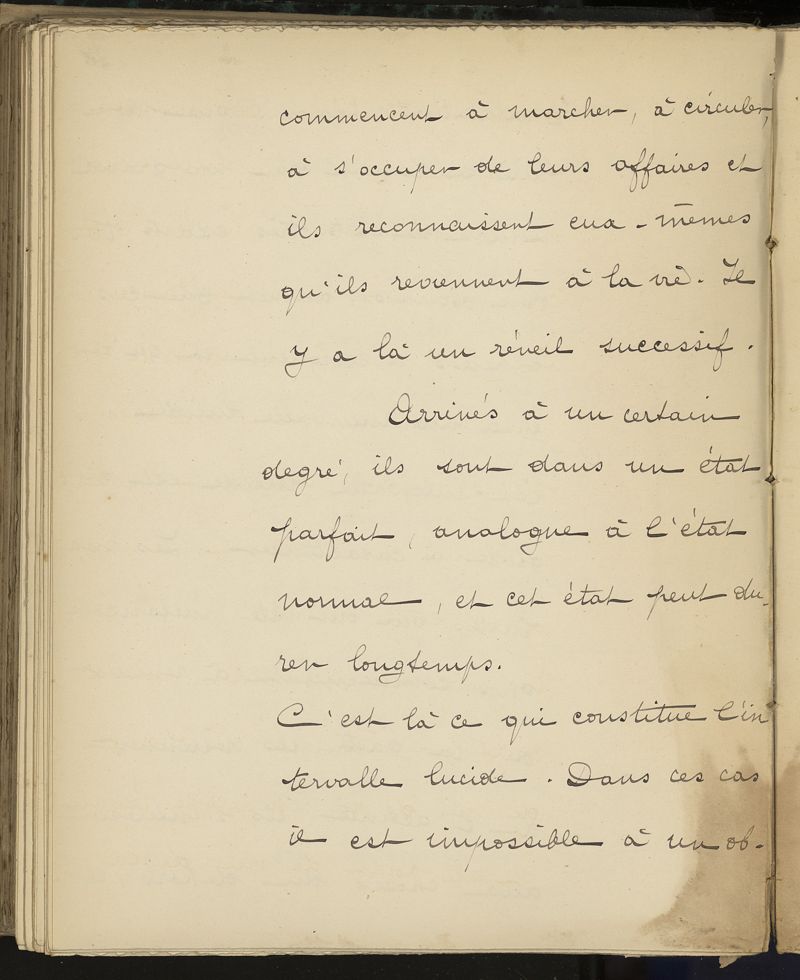 commencent à marcher, à circuler,
à s'occuper de leurs affaires et
ils reconnaissent eux-mêmes
qu'ils reviennent à la vie. Il
y a là un réveil successif.
Arrivés à un certain
degré, ils sont dans un état
parfait, analogue à l'état
normal, et cet état peut du-
rer longtemps.
C'est là ce qui constitue l'in
tervalle lucide. Dans ces cas
il est impossible à un ob-